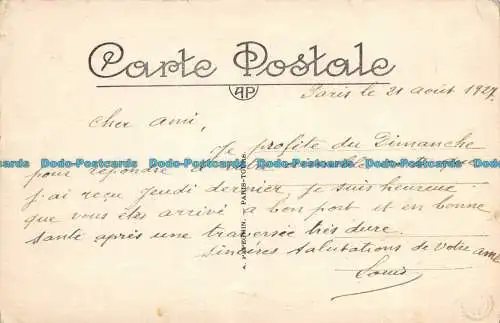 Carte Postale
AP
Paris le 21 août 1927
Cher ami,
Je profite du Dimanche
pour repondre à votre
j'ai reçu Jeudi dernier je suis heureux
que vous êtes arrivé a bon port et en bonne
santé après une traversée très dure.
Sincères salutations de votre ami
Louis
A. PAPEGHIN, PARIS-TOURS
Postcards Postcards Postcards Postcards